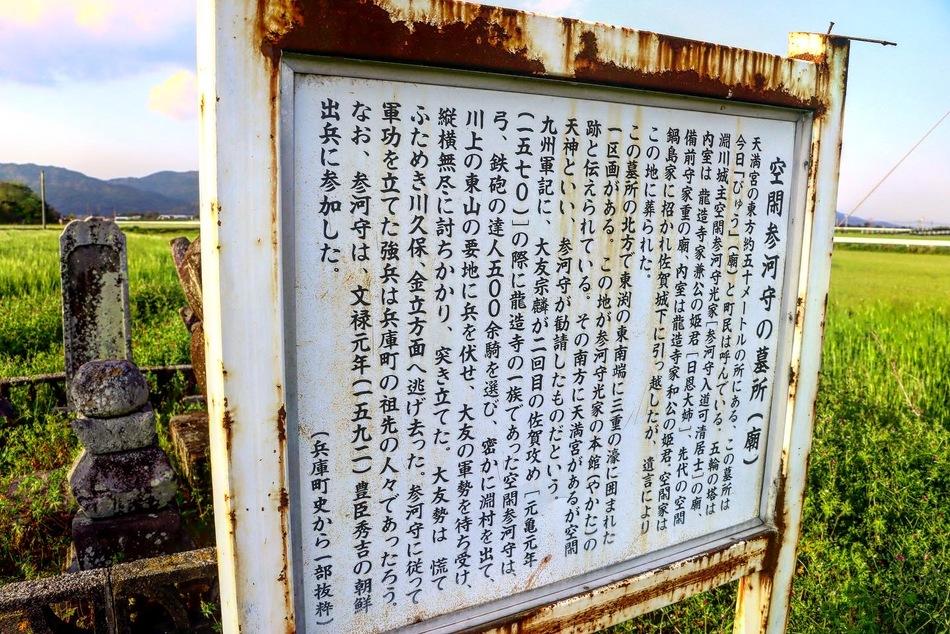 空閑参河守の墓所（廟）
天満宮の東方約五十メートルの所にある。この墓所は
今日「びゅう」（廟）と町民は呼んでいる。五輪の塔は
淵川城主空閑参河守光家［参河守入道可清居士］の廟、
内室は 龍造寺家兼公の姫君［日恩大姉］、先代の空閑
備前守家重の廟、内室は龍造寺家和公の姫君、空閑家は
鍋島家に招かれ佐賀城下に引っ越したが、 遺言により
この地に葬られた。
この墓所の北方で東渕の東南端に三重の濠に囲まれた
一区画がある。この地が参河守光家の本館（やかた）の
跡と伝えられている。その南方に天満宮があるが空閑
天神といい、 参河守が勧請したものだという。
九州軍記に、 大友宗麟が二回目の佐賀攻め［元亀元年
（一五七〇）］の際に龍造寺の一族であった空閑参河守は、
弓、鉄砲の達人五００余騎を選び、密かに淵村を出て、
川上の東山の要地に兵を伏せ、大友の軍勢を待ち受け、
縦横無尽に討ちかかり、突き立てた。大友勢は 慌て
ふためき川久保、金立方面へ逃げ去った。参河守に従って
軍功を立てた強兵は兵庫町の祖先の人々であったろう。
なお、参河守は、文禄元年（一五九二）豊臣秀吉の朝鮮
出兵に参加した。
（兵庫町史から一部抜粋）